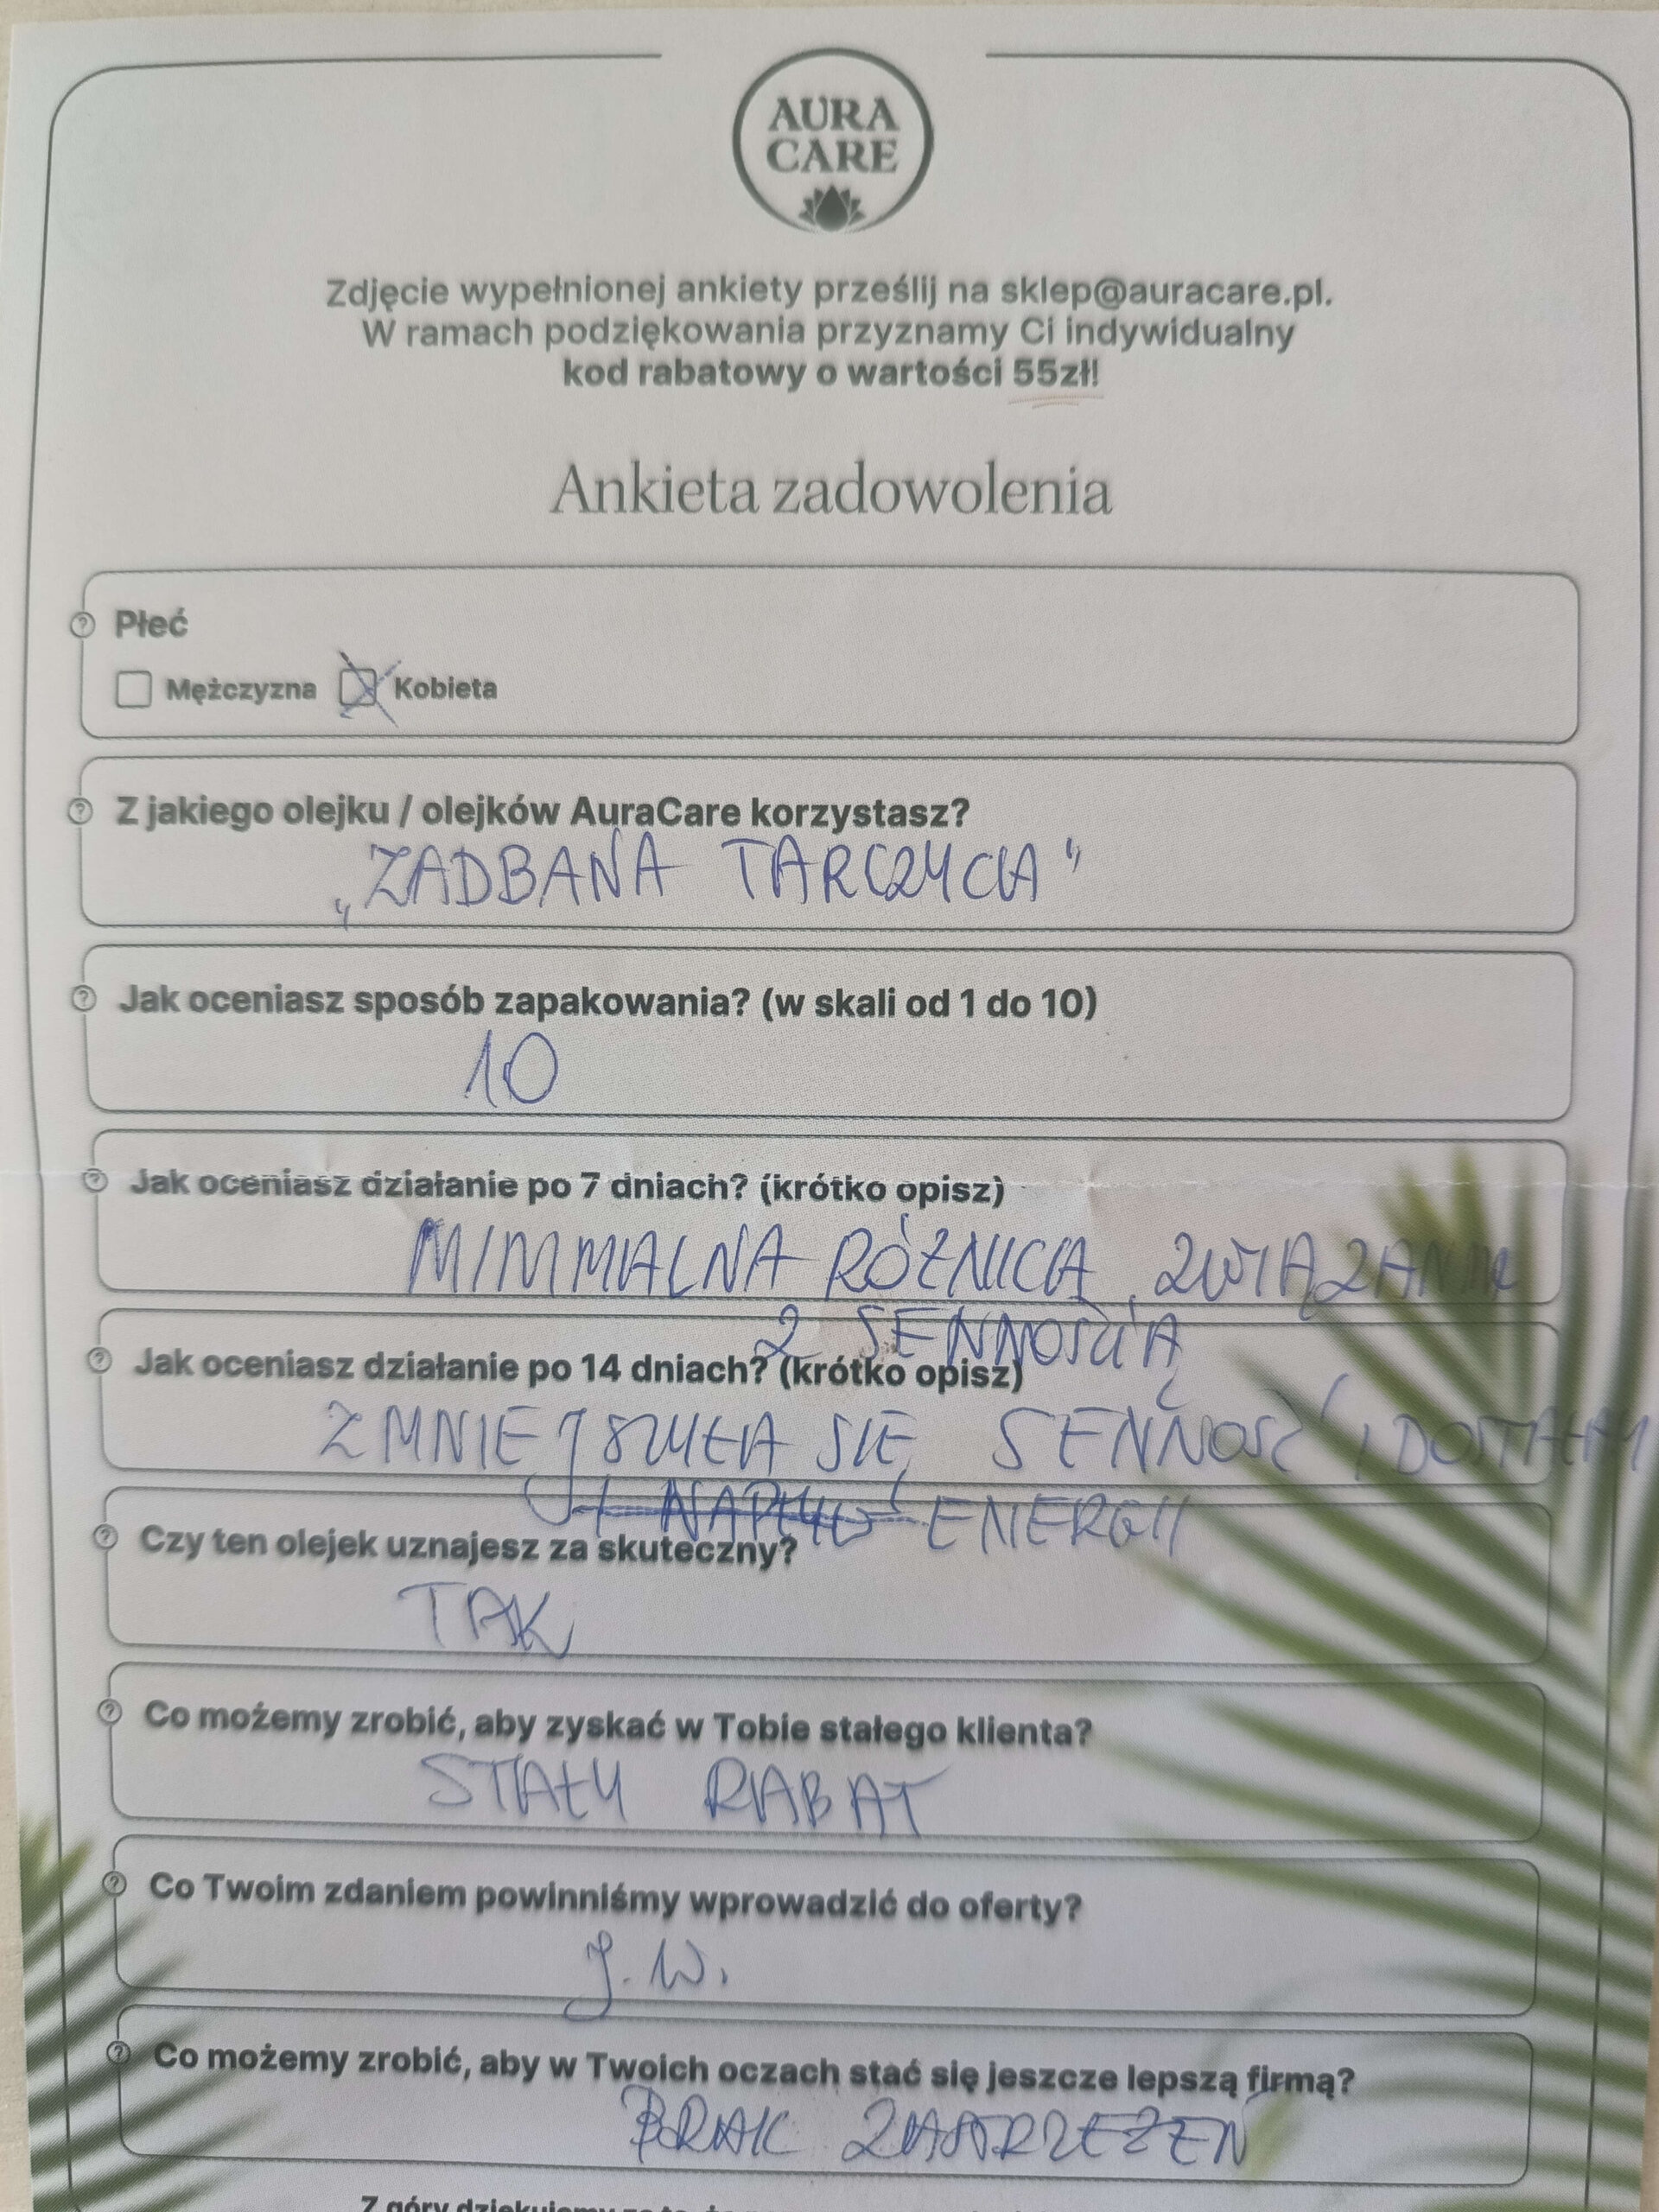 AURA
CARE
Zdjęcie wypełnionej ankiety prześlij na sklep@auracare.pl.
W ramach podziękowania przyznamy Ci indywidualny
kod rabatowy o wartości 55zł!
Ankieta zadowolenia
Płeć
Mężczyzna Kobieta
Z jakiego olejku / olejków AuraCare korzystasz?
„ZADBANA TARCZYCA”
Jak oceniasz sposób zapakowania? (w skali od 1 do 10)
10
Jak oceniasz działanie po 7 dniach? (krótko opisz)
MINIMALNA RÓŻNICA, ZWIĄZANA
Z SENNOŚCIĄ
Jak oceniasz działanie po 14 dniach? (krótko opisz)
ZMNIEJSZYŁA SIĘ SENNOŚĆ I DOSTAŁAM
ENERGII
Czy ten olejek uznajesz za skuteczny?
TAK
Co możemy zrobić, aby zyskać w Tobie stałego klienta?
STAŁY RABAT
Co Twoim zdaniem powinniśmy wprowadzić do oferty?
J.W.
Co możemy zrobić, aby w Twoich oczach stać się jeszcze lepszą firmą?
BRAK ZASTRZEŻEŃ
Z góry dziękujemy za to, że